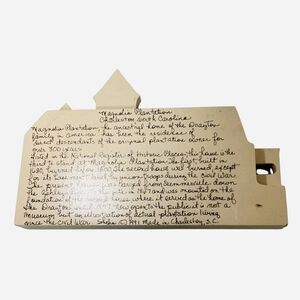 Magnolia Plantation
Charleston, South Carolina
Magnolia Plantation the ancestral home of the Drayton
family in America has been the residence of
direct descendants of the original plantation owner for
over 300 years.
Listed in the National Register of Historic Places this house is the
third to stand at Magnolia Plantation. The first, built in
1680, burned before 1800. The second house was burned, except
for its basement by union troops during the Civil War.
The present was barged from Summerville down
the Ashley River in 1873 and was mounted on the
foundation of house where it served as the home of
the Draytons until 1977. Now open to the public it is not a
Museum but an illustration of actual plantation living
since the Civil War. © 1991 Made in Charleston, S.C.